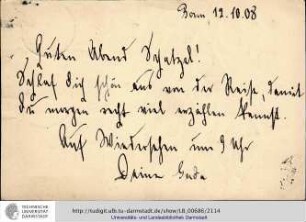 Bonn, 12.10.08
Guten Abend Schatzel!
Schlaf dich schön aus von der Reise, damit
Du morgen recht viel erzählen kannst.
Auf Wiedersehen um 9 Uhr
Deine
TECHNISCHE
UNIVERSITÄT
DARMSTADT
http://tudigit.ulb.tu-darmstadt.de/show/LB_00686/2114
Universitäts- und Landesbibliothek Darmstadt